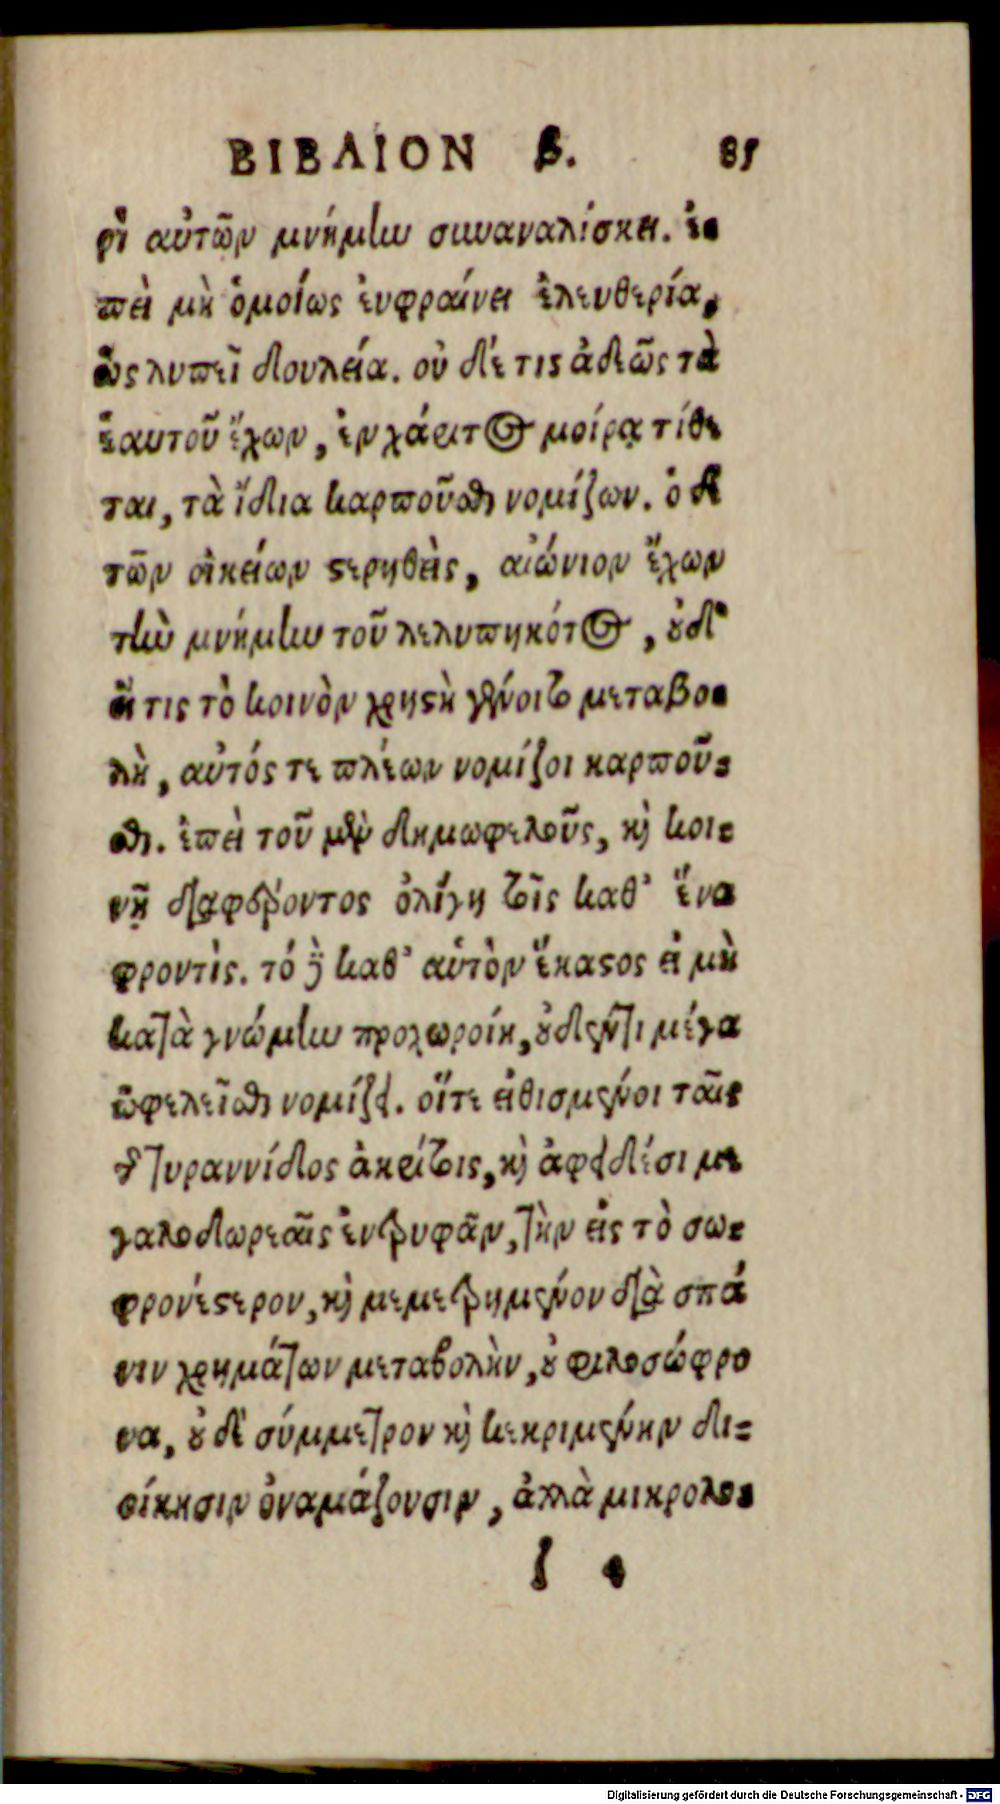 ΒΙΒΛΙΟΝ β. 85
ρὶ αὐτῶν μνήμην συναναλίσκει. ἐ-
πεὶ μὴ ὁμοίως ἐυφραίνει ἐλευθερία,
ὡς λυπεῖ δουλεία. οὐ δέ τις ἀδεῶς τὰ
ἑαυτοῦ ἔχων, ἐν χάριτος μοίρᾳ τίθε
ται, τὰ ἴδια καρποῦσθαι νομίζων. ὁ δὲ
τῶν οἰκείων στερηθεὶς, αἰώνιον ἔχων
τὴν μνήμην τοῦ λελυπηκότος, οὐδ'
εἴ τις τὸ κοινὸν χρηστὴ γένοιτο μεταβο-
λὴ, αὐτός τε πλέων νομίζοι καρποῦ-
σθαι. ἐπεὶ τοῦ μὲν δημωφελοῦς, καὶ κοι-
νῇ διαφέροντος ὀλίγη τοῖς καθ' ἕνα
φροντὶς. τό δὲ καθ' αὑτὸν ἕκαστος εἰ μὴ
κατὰ γνώμην προχωροίη, οὐδέν τι μέγα
ὠφελεῖσθαι νομίζει. οἵτε εἰθισμένοι ταῖς
τῆς τυραννίδος ἀκρίτοις, καὶ ἀφειδέσι με
γαλοδωρεαῖς ἐντρυφᾶν, τὴν εἰς τὸ σω-
φρονέστερον, καὶ μεμετρημένον διὰ σπά
νιν χρημάτων μεταβολὴν, οὐ φιλοσώφρο
να, οὐ δὲ σύμμετρον καὶ κεκριμένην δι-
οίκησιν ὀναμάζουσιν, ἀλλὰ μικρολο-